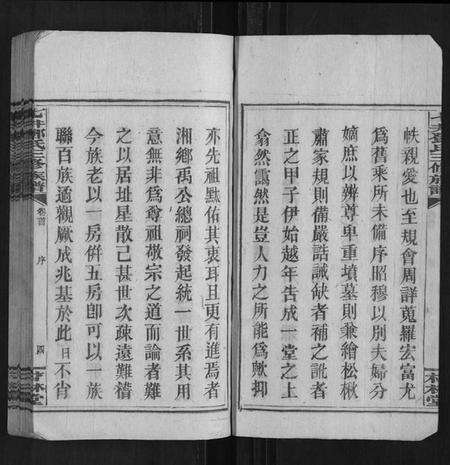 帙親愛也至規會周詳蒐羅宏富尤
爲舊乘所未備序昭穆以別夫婦分
嫡庶以辨尊卑重墳墓則兼繪松楸
肅家規則備嚴誥誡缺者補之訛者
正之甲子伊始越年告成一堂之上
翕然靄然是豈人力之所能爲歟抑
亦先祖黙佑其衷耳且更有進焉者
湘鄉禹公總祠發起統一世系其用
意無非爲尊祖敬宗之道而論者難
之以居址星散已甚世次疎遠難榗
今族老以一房倂五房卽可以一族
聯百族遹觀厥成兆基於此日不肖
氏三修族譜
卷首
序
四